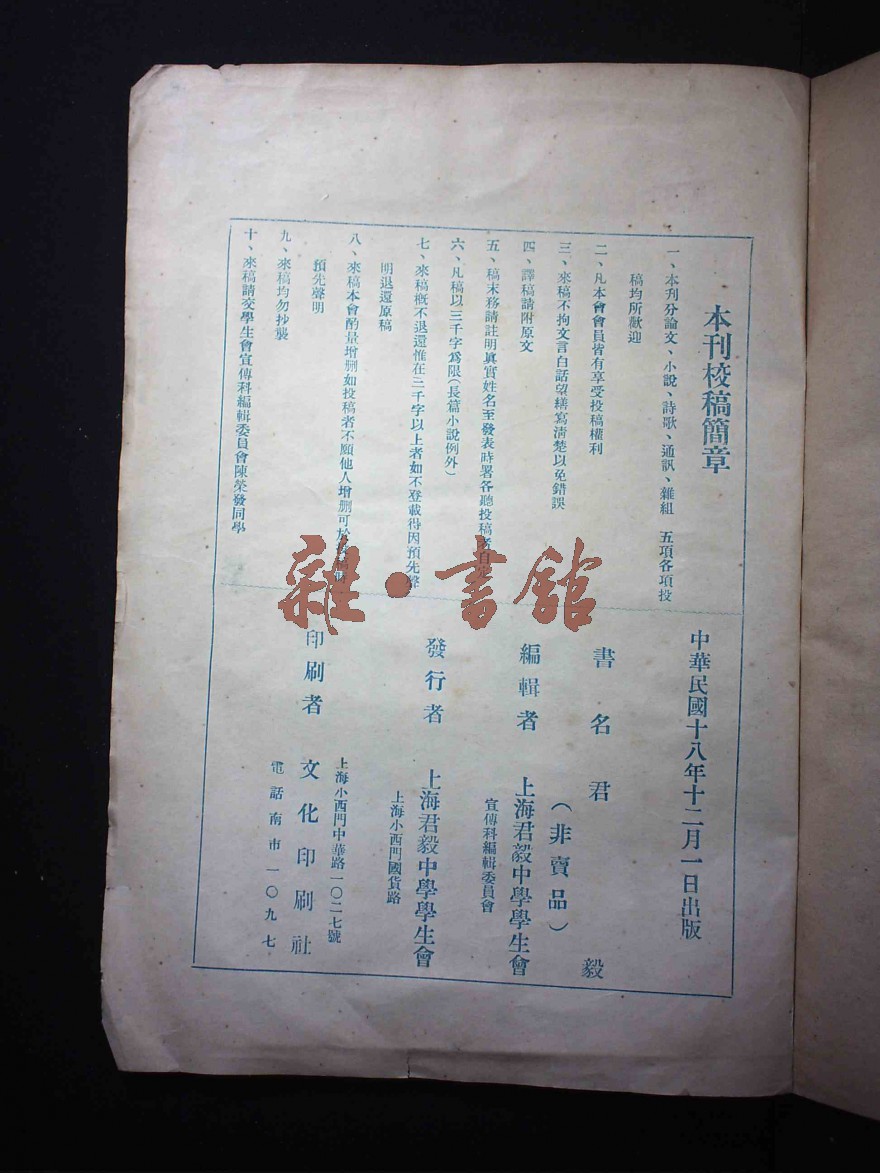 本刊校稿簡章
一、本刊分論文、小說、詩歌、通訊、雜組 五項各項投
稿均所歡迎
二、凡本會會員皆有享受投稿權利
三、來稿不拘文言白話望繕寫清楚以免錯誤
四、譯稿請附原文
五、稿末移請註明眞實姓名至發表時署各聽投稿者自定
六、凡稿以三千字爲限(長篇小說例外)
七、來稿槪不退還惟在三千字以上者如不登載得因預先聲
明退還原稿
八、來稿本會酌量增删如投稿者不願他人增删可於投稿時
預先聲明
九、來稿均勿抄襲
十、來稿請交學生會宣傳科編輯委員會陳榮發同學
中華民國十八年十二月一日出版
書名君毅
(非賣品)
編輯者 上海君毅中學學生會
宣傳科編輯委員會
發行者 上海君毅中學學生會
上海小西門國貨路
上海小西門中華路一〇二七號
印刷者 文化印刷社
電話南市一〇九七
雜·書館